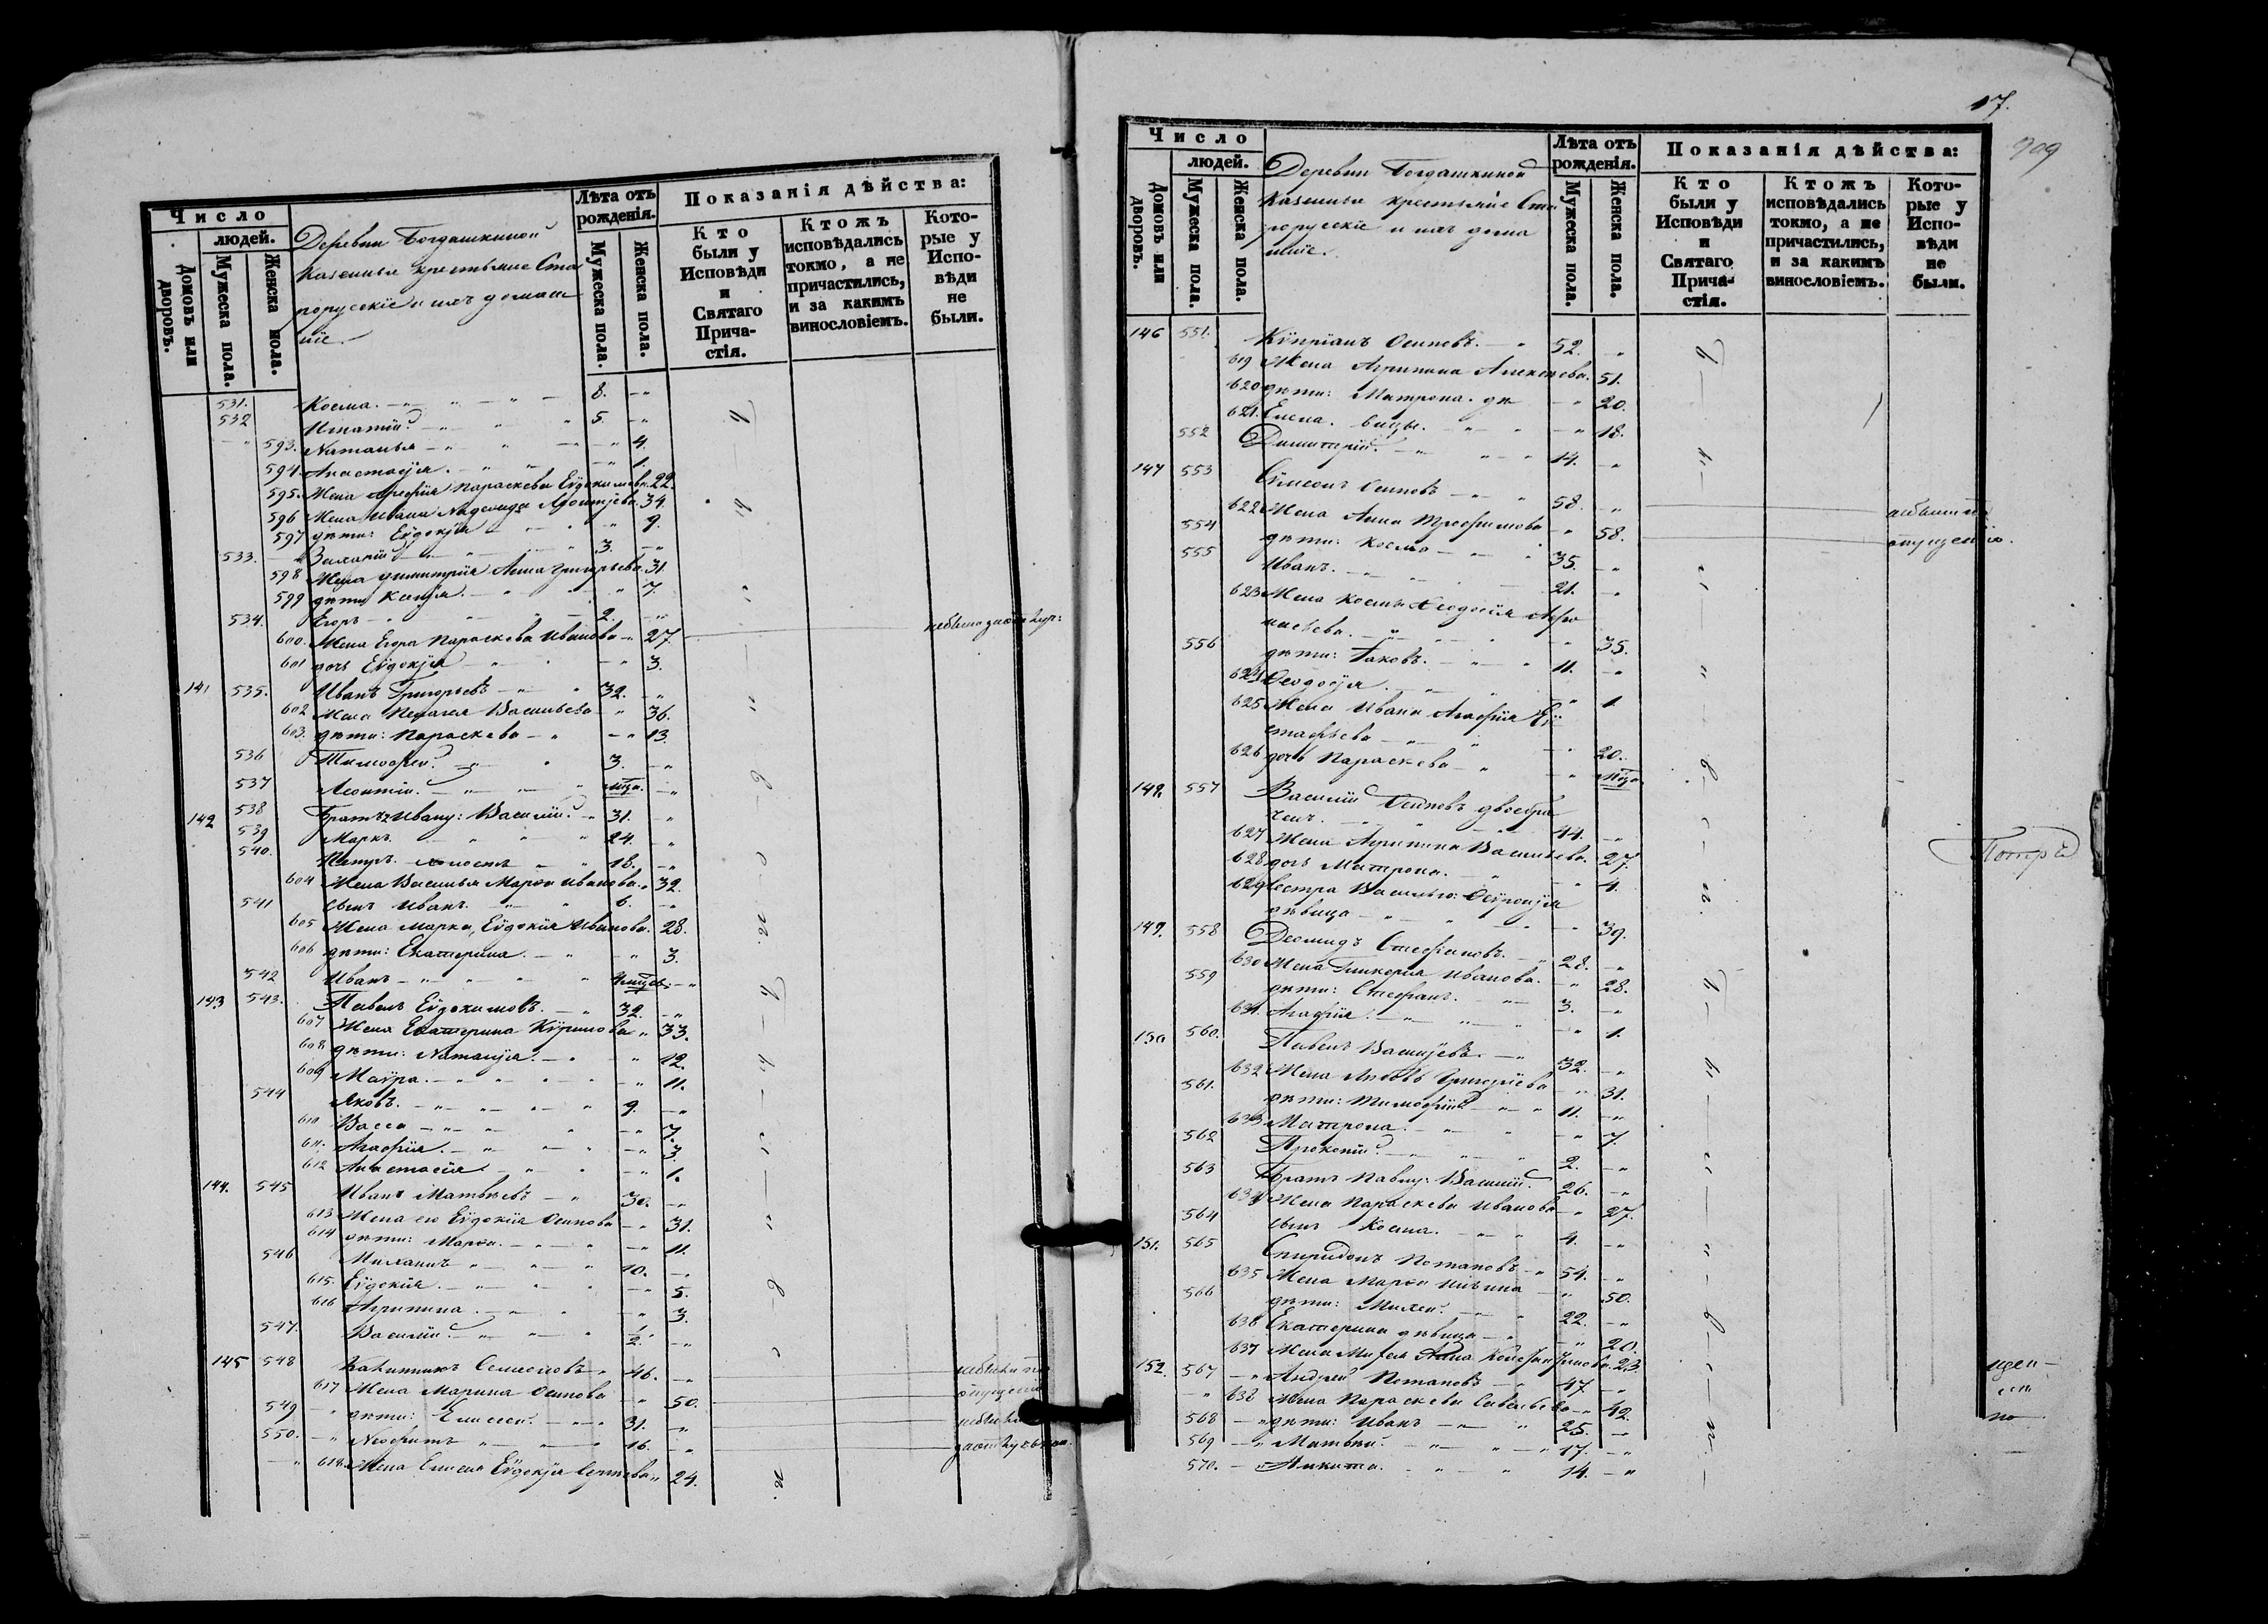 Число
людей.
Домовъ или дворовъ.
Мужеска пола.
Женска пола.
Деревни Богдашкиной
Казенные крестьяне Ста
рорусскіе и ихъ домаш
ніе.
Лѣта отъ рожденія.
Мужеска пола.
Женска пола.
Показанія дѣйства:
Кто были у Исповѣди и Святаго Прича-стія.
Ктожъ исповѣдались токмо, а не причастились, и за какимъ винословіемъ.
Кото-рые у Испо-вѣди не были.
531. Косма. 8.
532 Игнатій. 5.
593. Наталья 4.
594. Анастасія. 1.
595. Жена Арефія Параскева Евдокимова. 22.
596 Жена Ивана Надежда 34.
597 дѣти: Евдокія 9.
533. 3.
598 Жена Димитрія Анна Григорьева. 31.
599 дѣти 7.
534. Егоръ 2.
600. Жена Егора Параскева Иванова 27.
601 дочь Евдокія 3.
141 535. Иванъ Григорьевъ 32.
602 Жена Пелагея Васильева 36.
603. дѣти: Параскева 13.
536 Тимофей. 3.
537 Леонтій.
142 538 Братъ Ивану: Василій. 31.
539 Маркъ 24.
540. Петръ. холостъ 18.
604 Жена Василья Марфа Иванова. 32.
541 сынъ Иванъ. 6.
605 Жена Марка, Евдокія Иванова. 28.
606 дѣти: Екатерина. 3.
542 Иванъ
143 543. Павелъ Евдокимовъ. 32.
607 Жена Екатерина 33.
608 дѣти: Наталія. 12.
609 Мавра. 11.
544 Яковъ. 9.
610 Васса 7.
611. Агафія. 3
612 Анастасія 1.
144. 545 Иванъ Матвѣевъ 30.
613 Жена его Евдокія Осипова 31.
614 дѣти: Марфа. 11.
546 Михаилъ 10.
615. Евдокія. 5.
616 Агрипина. 3.
547. Василій. 1/2.
145 548 Семеновъ 46.
617 Жена Марина Осипова 50.
549 дѣти: Елисей. 31.
550. Неофитъ 16.
618. Жена Елисея Евдокія 24.
17.
909
Число
людей.
Домовъ или дворовъ.
Мужеска пола.
Женска пола.
Деревни Богдашкиной
Казенные крестьяне Ста
рорусскіе и ихъ дома
шніе.
Лѣта отъ рожденія.
Мужеска пола.
Женска пола.
Показанія дѣйства:
Кто были у Исповѣди и Святаго Прича-стія.
Ктожъ исповѣдались токмо, а не причастились, и за какимъ винословіемъ.
Кото-рые у Испо-вѣди не были.
146 551. Кипріанъ Осиповъ. 52.
619 Жена Агрипина Алексѣева. 51.
620 дѣти: Матрона. дѣ 20.
621. Елена. вицы. 18.
552 Димитрій. 14.
147 553 Симеонъ Осиповъ 58.
622 Жена Анна Трофимова 58.
554 дѣти: Косма 35.
555 Иванъ. 21.
623 Жена Космы Феодосія Афа
насьева. 35.
556 дѣти: Іаковъ. 11.
624 Феодосія 1.
625 Жена Ивана Агафія Ев
стафьева 20.
626 дочь Параскева
148. 557 Василій Осиповъ двоебра
ченъ. 44.
627 Жена Агрипина Васильева. 27.
628 дочь Матрона. 4.
629 Сестра Василью:
дѣвица 39.
149. 558 Деомидъ Стефановъ. 28.
630 Жена Гликерія Иванова. 28.
559 дѣти: Стефанъ. 3.
631. Агафія. 1.
150 560. Павелъ Васильевъ. 32.
632 Жена Любовь Григорьева 31.
561. дѣти: Тимофей. 11.
633 Матрона. 7.
562 Прокопій. 2.
563 Братъ Павлу: Василій. 26.
634 Жена Параскева Иванова 27.
564 сынъ Косма. 4.
151. 565 Спиридонъ Потаповъ 54.
635 Жена Марфа Ильина 50.
566 дѣти: Михей. 22.
636 Екатерина дѣвица 20.
637 Жена Михея Анна 23.
152. 567 Андрей Потаповъ 47.
638 Жена Параскева Савельева 42.
568 дѣти: Иванъ 25.
569 Матвѣй. 17.
570. Никита. 14.